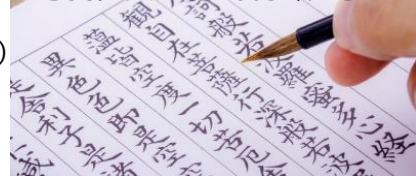 訶般若波羅蜜多心経
観自在菩薩行深般若波
蘊皆空度一切苦厄舎
異色色即是空空
是舎利子是諸
識